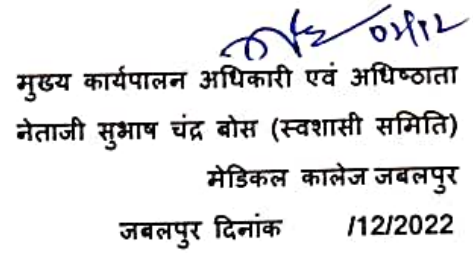 02/12
मुख्य कार्यपालन अधिकारी एवं अधिष्ठाता
नेताजी सुभाष चंद्र बोस (स्वशासी समिति)
मेडिकल कालेज जबलपुर
जबलपुर दिनांक /12/2022